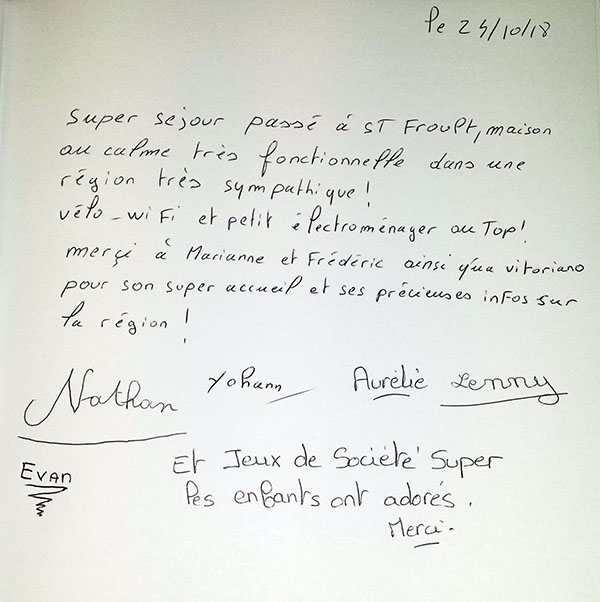 le 24/10/18
Super séjour passé à ST Froult, maison
au calme très fonctionnelle dans une
région très sympathique !
vélo - wiFi et petit électroménager au Top !
merçi à Marianne et Frédéric ainsi qu'a vitoriano
pour son super accueil et ses précieuses infos sur
la région !
Nathan Yohann Aurélie Lenny
Evan
Et Jeux de Société Super
les enfants ont adorés.
Merci.